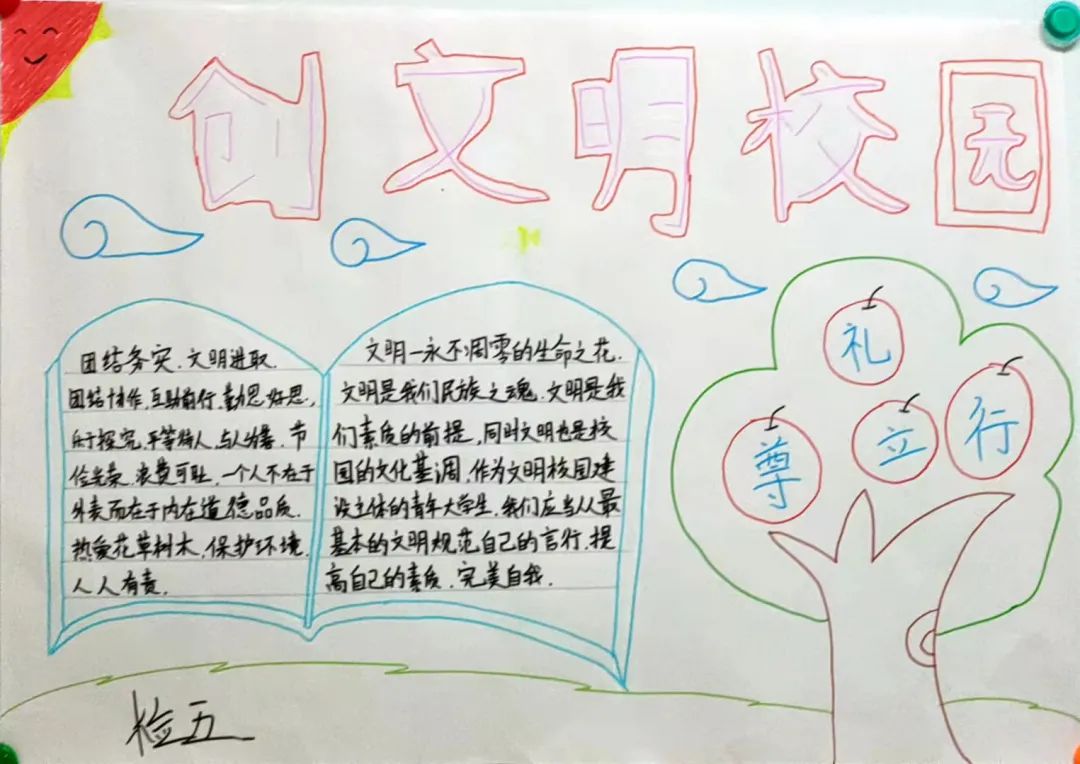 创文明校园
团结务实.文明进取.
团结协作,互助前行,勤思好思,
乐于探究,平等待人,与人为善,节
俭光荣,浪费可耻,一个人不在于
外表而在于内在道德品质.
热爱花草树木,保护环境,
人人有责.
文明一永不凋零的生命之花.
文明是我们民族之魂.文明是我
们素质的前提,同时文明也是校
园的文化基调,作为文明校园建
设主体的青年大学生,我们应当从最
基本的文明规范自己的言行,提
高自己的素质,完美自我.
礼
尊
立
行
检五